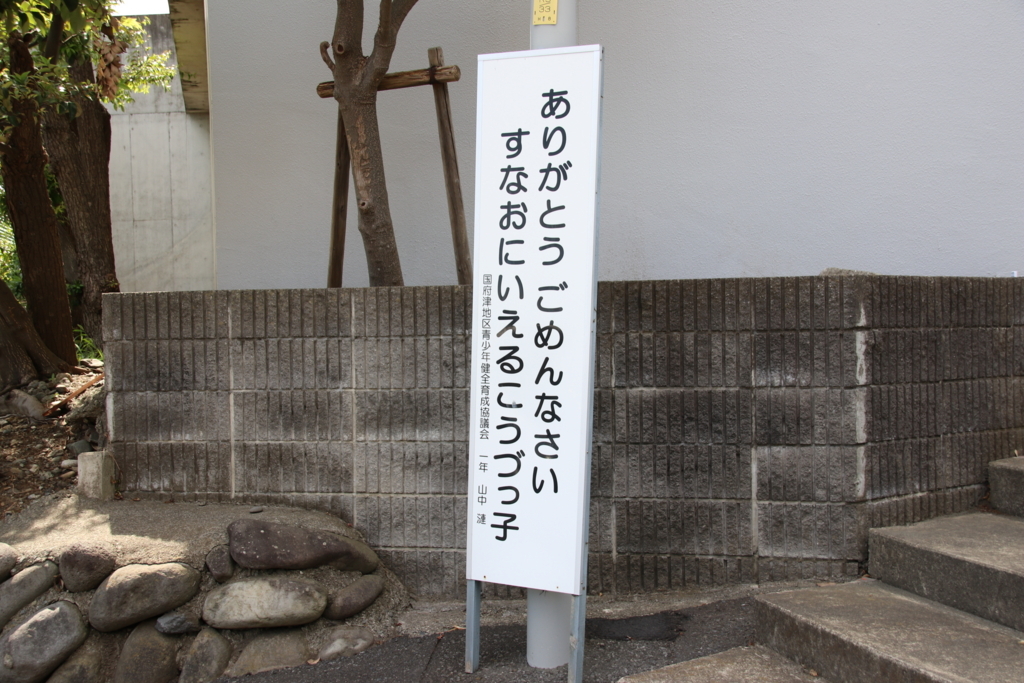 ありがとう ごめんなさい
すなおにいえるこうづっ子
国府津地区青少年健全育成協議会 一年 山中 漣
33